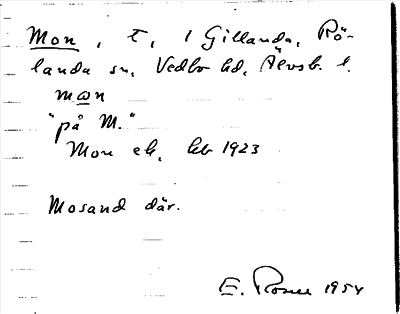 Mon, t, 1 Gillanda, Rö-
landa sn, Vedbo hd, Älvsb. l.
mɷn
"på M."
Mon ek. kb 1923
Mosand där.
E. Rosell 1954